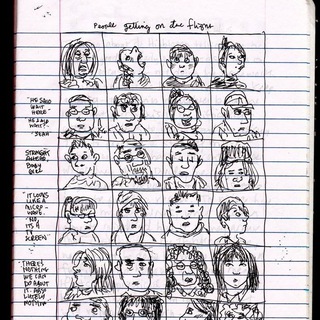 People getting on the flight
"HE SAID
WAIT
HERE"
"HE SAID
WHAT?"
"YEAH"
AHEAD,
BODY
"IT LOOKS
LIKE A
MICRO-
WAVE"
"NO,
IT'S A
TV
SCREEN"
"THERE'S
NOTHING
WE CAN
DO ABOUT
IT. ABSO
LUTELY